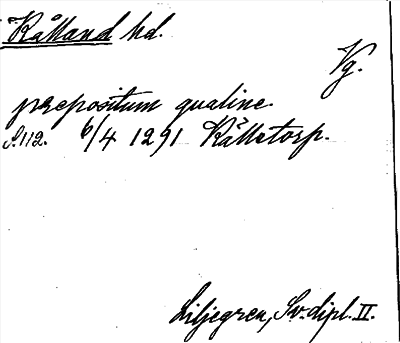 Kålland hd.
Vg.
prepositum qualine.
S. 112. 6/4 1291 Källetorp.
Liljegren, Sv. dipl. II.